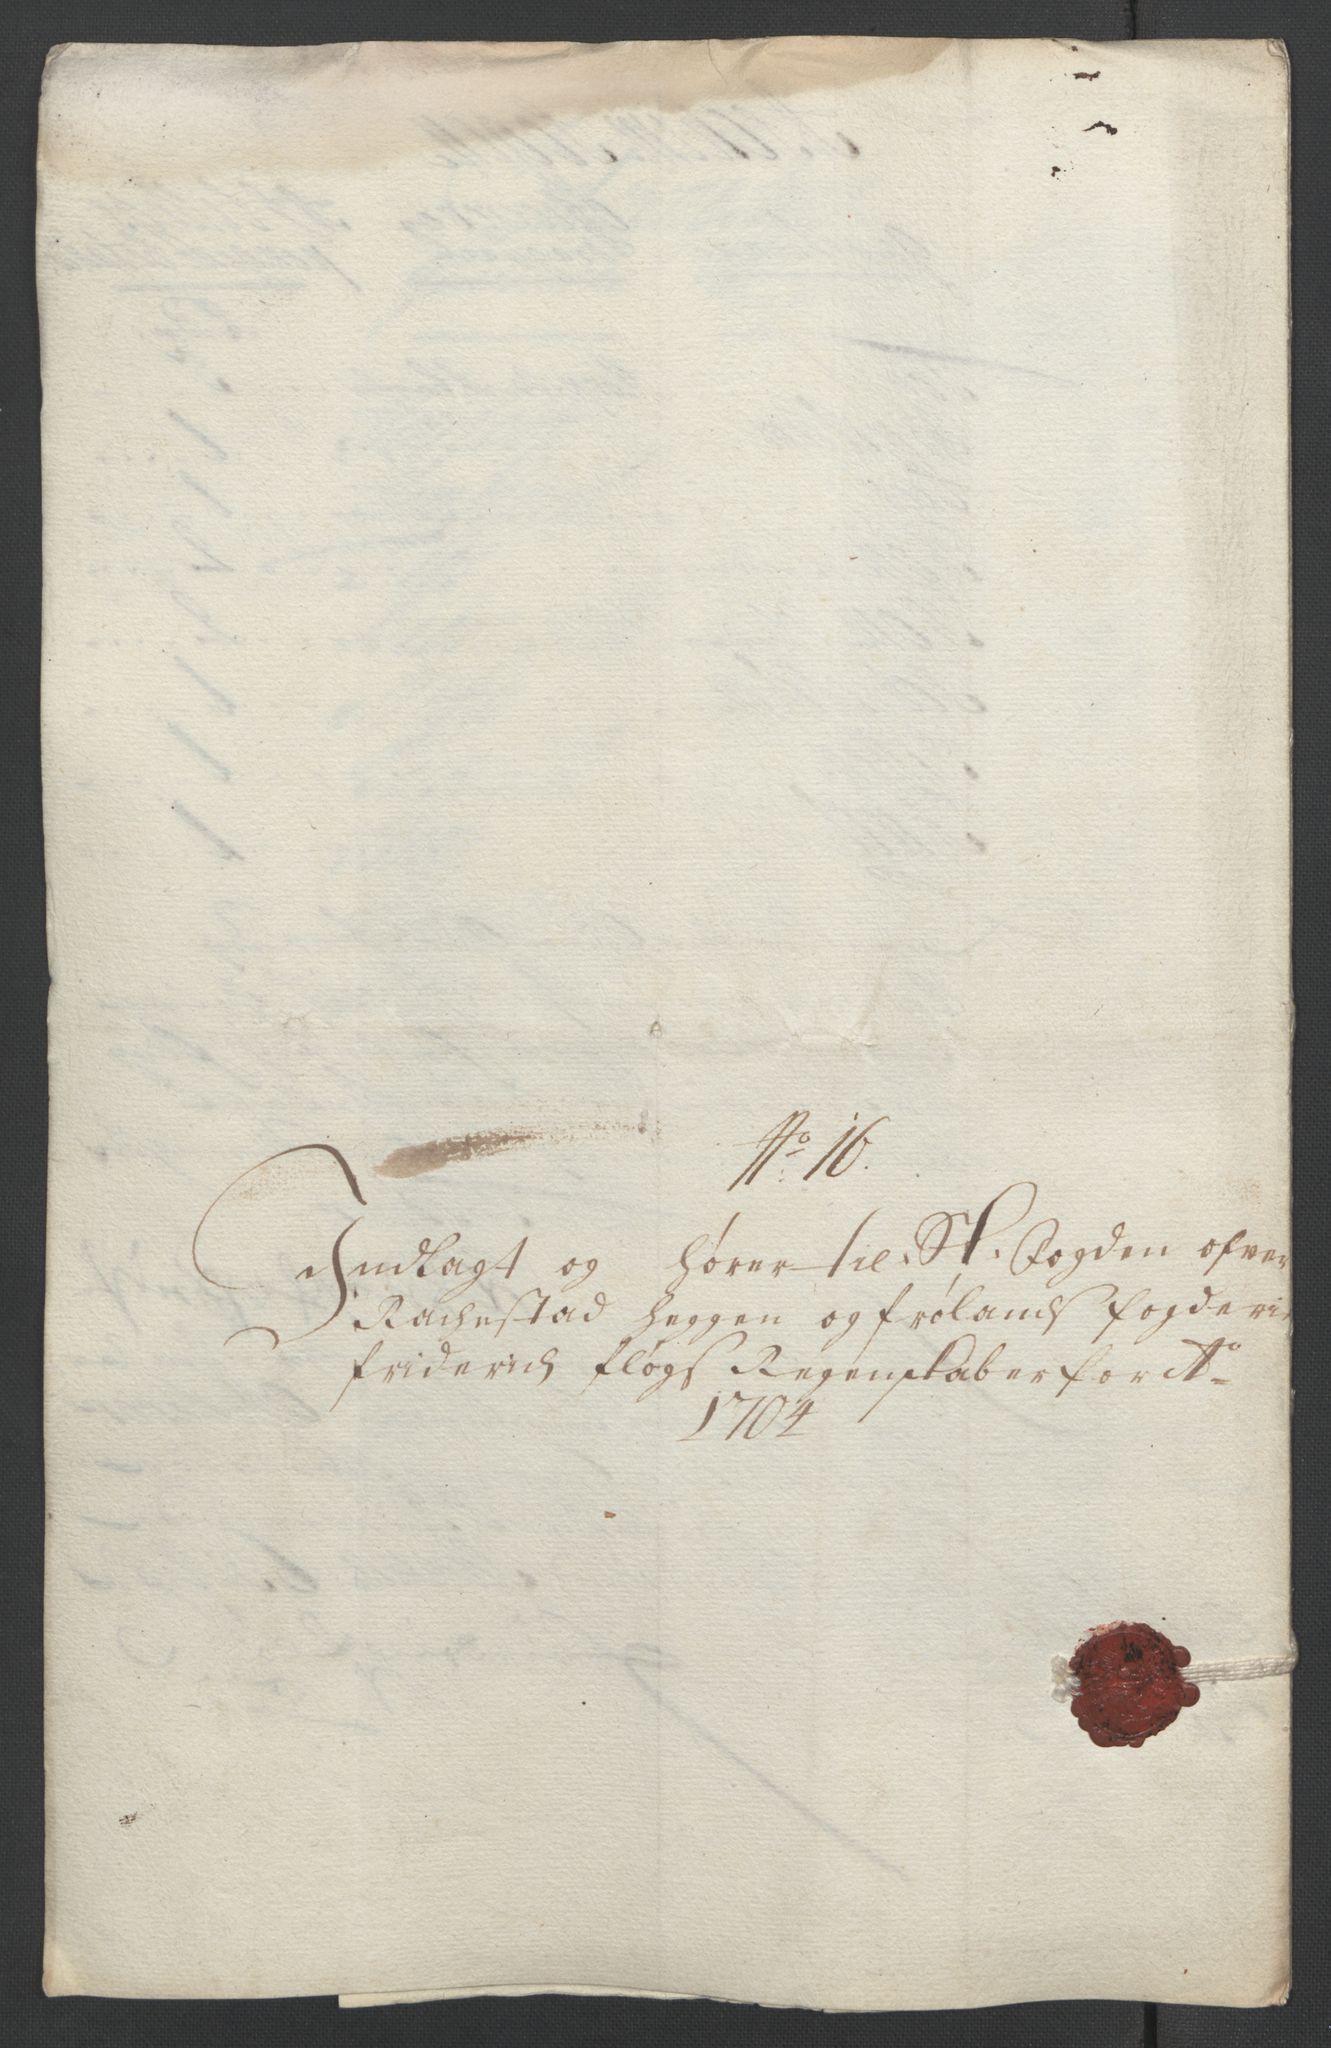 No 16.
Indlagt og hører til Sr. Fogden ofver
Rachestad Heggen og frølands fogderie
friderich fløgs Regenskaber for Ao
1704